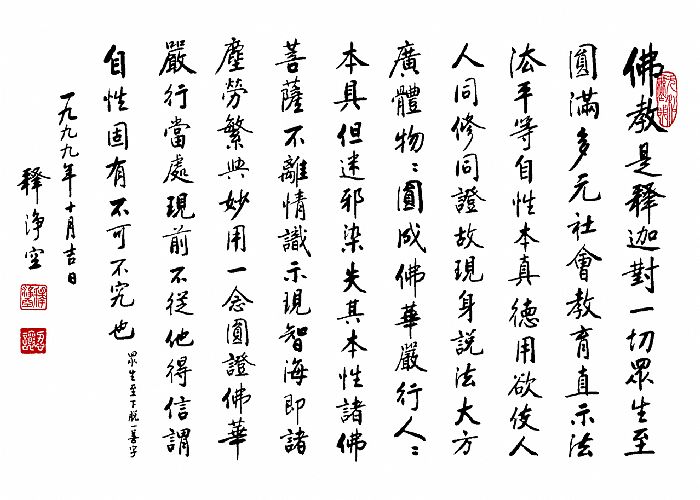 佛教是釋迦對一切眾生至
圓滿多元社會教育直示法
法平等自性本真德用欲使人
人同修同證故現身說法大方
廣體物々圓成佛華嚴行人々
本具但迷邪染失其本性諸佛
菩薩不離情識示現智海即諸
塵勞繁興妙用一念圓證佛華
嚴行當處現前不從他得信謂
自性固有不可不究也
眾生至下脫一善字
一九九九年十月吉日
釋淨空